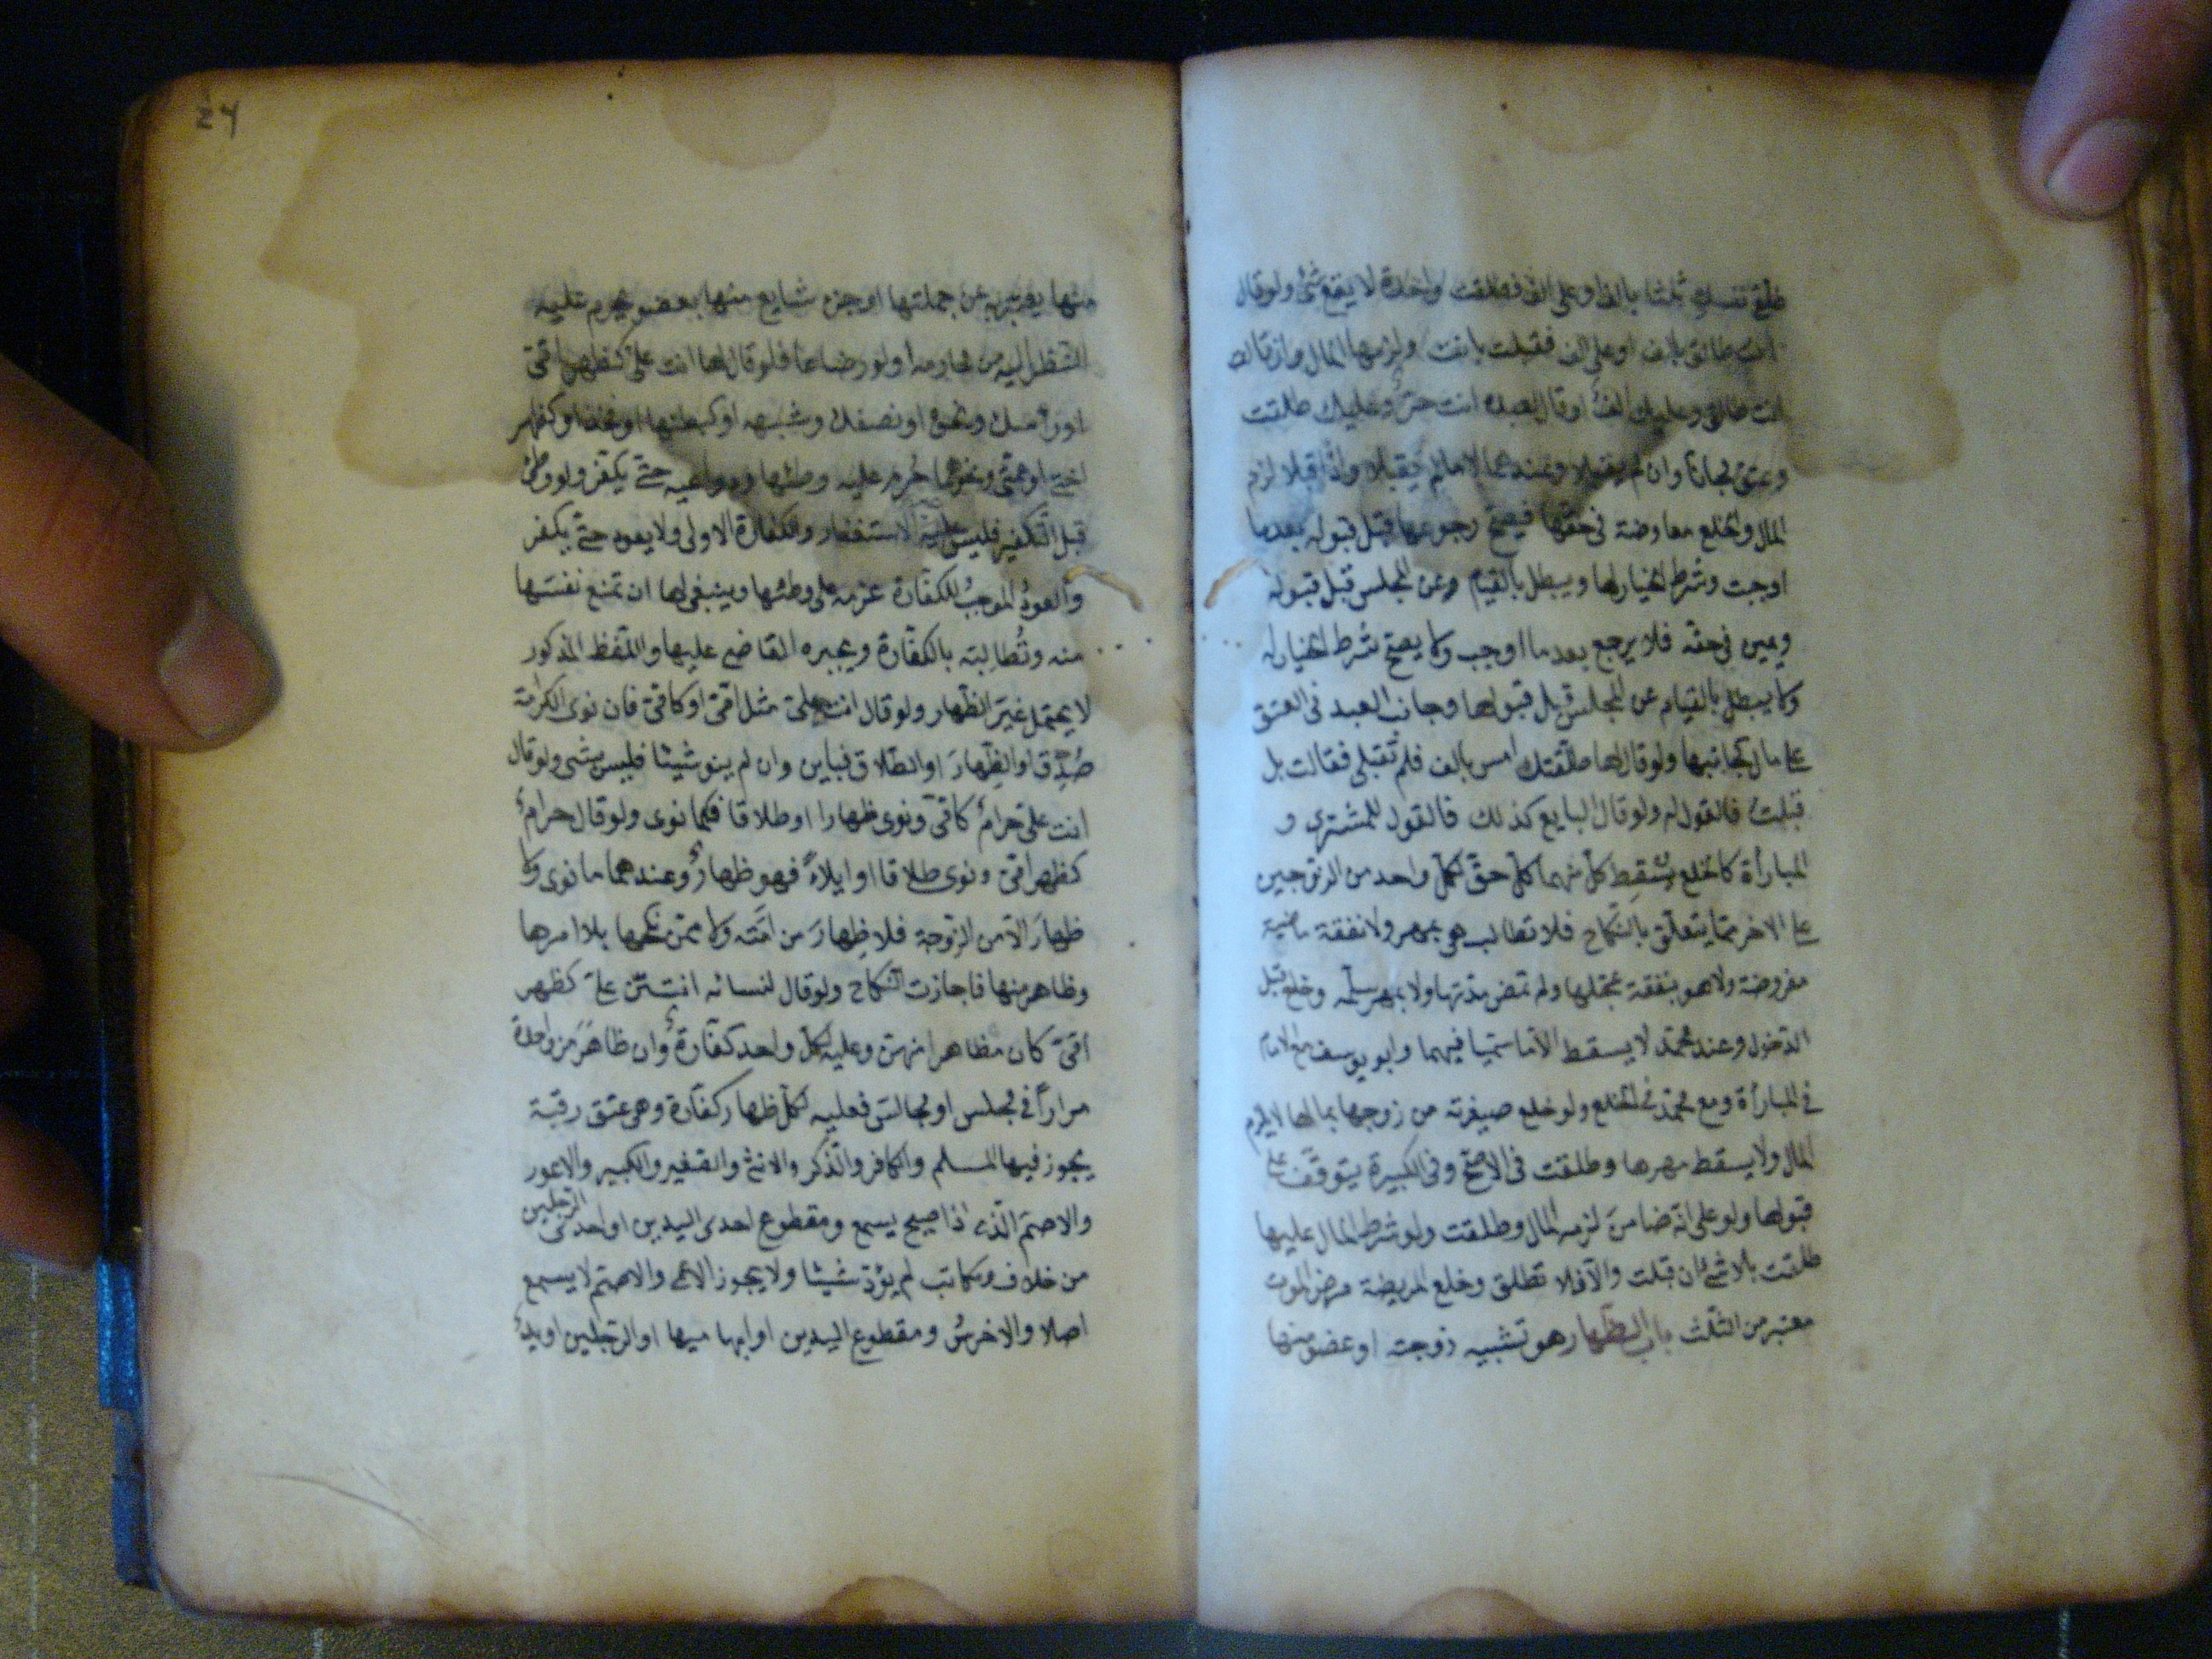 طلقي نفسك ثلثا بالف او على الف فطلقت واحدة لا يقع شئ ولو قال
انت طالق بالف او على الف فقبلت بانت ولزمها المال وان قال
انت طالق وعليك الف او قال لعبده انت حر وعليك طلقت
وعتق مجانا وان لم يقبلا وعندهما لا ما لم يقبلا واذا قبلا لزم
المال والخلع معاوضة فى حقها فيصح رجوعها قبل قبوله بعدما
اوجبت وشرط الخيار لها ويبطل بالقيام عن المجلس قبل قبوله
ويمين فى حقه فلا يرجع بعد ما اوجب ولا يصح شرط الخيار له
ولا يبطل بالقيام عن المجلس قبل قبولها وجانب العبد فى العتق
على مال كجانبها ولو قال لها طلقتك امس بالف فلم تقبلى فقالت بل
قبلت فالقول له ولو قال البايع كذلك فالقول للمشترى و
المبارأة كالخلع يسقط كل منهما كل حق لكل واحد من الزوجين
على الاخر مما يتعلق بالنكاح فلا تطالب هى بمهر ولا نفقة ماضية
مفروضة ولا هو بنفقة عجلها ولم تمض مدتها ولا بمهر سلمه وخلع قبل
الدخول وعند محمد لا يسقط الا ما سميا فيهما وابو يوسف مع الامام
فى المبارأة ومع محمد فى الخلع ولو خلع صغيرته من زوجها بمالها لا يلزم
المال ولا يسقط مهرها وطلقت فى الاصح وفى الكبيرة يتوقف على
قبولها ولو على انه ضامن لزمه المال وطلقت ولو شرط المال عليها
طلقت بلا شئ ان قبلت والا فلا تطلق وخلع المريضة مرض الموت
معتبر من الثلث باب الظهار هو تشبيه زوجته او عضو منها
24
منها يعبر به عن جملتها او جزء شايع منها بعضو يحرم عليه
النظر اليه من محارمه ولو رضاعا فلو قال لها انت على كظهر امى
او رأسك ونحوه او نصفك وشبهه او كبطنها او فخذها او كظهر
اختى او عمتى ونحوهما حرم عليه وطئها ودواعيه حتى يكفر ولو وطئ
قبل التكفير فليس عليه الا ستغفار والكفارة الاولى ولا يعود حتى يكفر
والعود الموجب للكفارة عزمه على وطئها وينبغى لها ان تمنع نفسها
منه وتطالبته بالكفارة ويجبره القاضى عليها واللفظ المذكور
لا يحتمل غير الظهار ولو قال انت على مثل امى او كامى فان نوى الكرامة
صدق او الظهار او الطلاق فباين وان لم ينو شيئا فليس بشى ولو قال
انت على حرام كامى ونوى ظهارا او طلاقا فكما نوى ولو قال حرام
كظهر امى ونوى طلاقا او ايلاء فهو ظهار وعندهما ما نوى ولا
ظهار الا من الزوجة فلا ظهار من امته ولا ممن نكحها بلا امرها
وظاهر منها فاجازت النكاح ولو قال لنسائه انتن على كظهر
امى كان مظاهرا منهن وعليه لكل واحد كفارة وان ظاهر من واحدة
مرارا فى مجلس او مجالس فعليه لكل ظهار كفارة وهى عتق رقبة
يجوز فيها المسلم والكافر والذكر والانثى والصغير والكبير والاعور
والاصم الذى اذا صيح يسمع ومقطوع احدى اليدين او احدى الرجلين
من خلاف ومكاتب لم يؤد شيئا ولا يجوز الاعمى والاصم لا يسمع
اصلا والاخرس ومقطوع اليدين او ابهاميها او الرجلين او يد